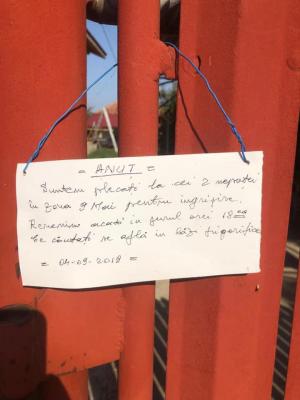 = ANUT =
Suntem plecați la cei 2 nepoței
în zona 9 Mai pentru îngrijire.
Revenim acasă în jurul orei 18 00
Ce căutați se află în lăzi frigorifice
= 04-09-2018 =